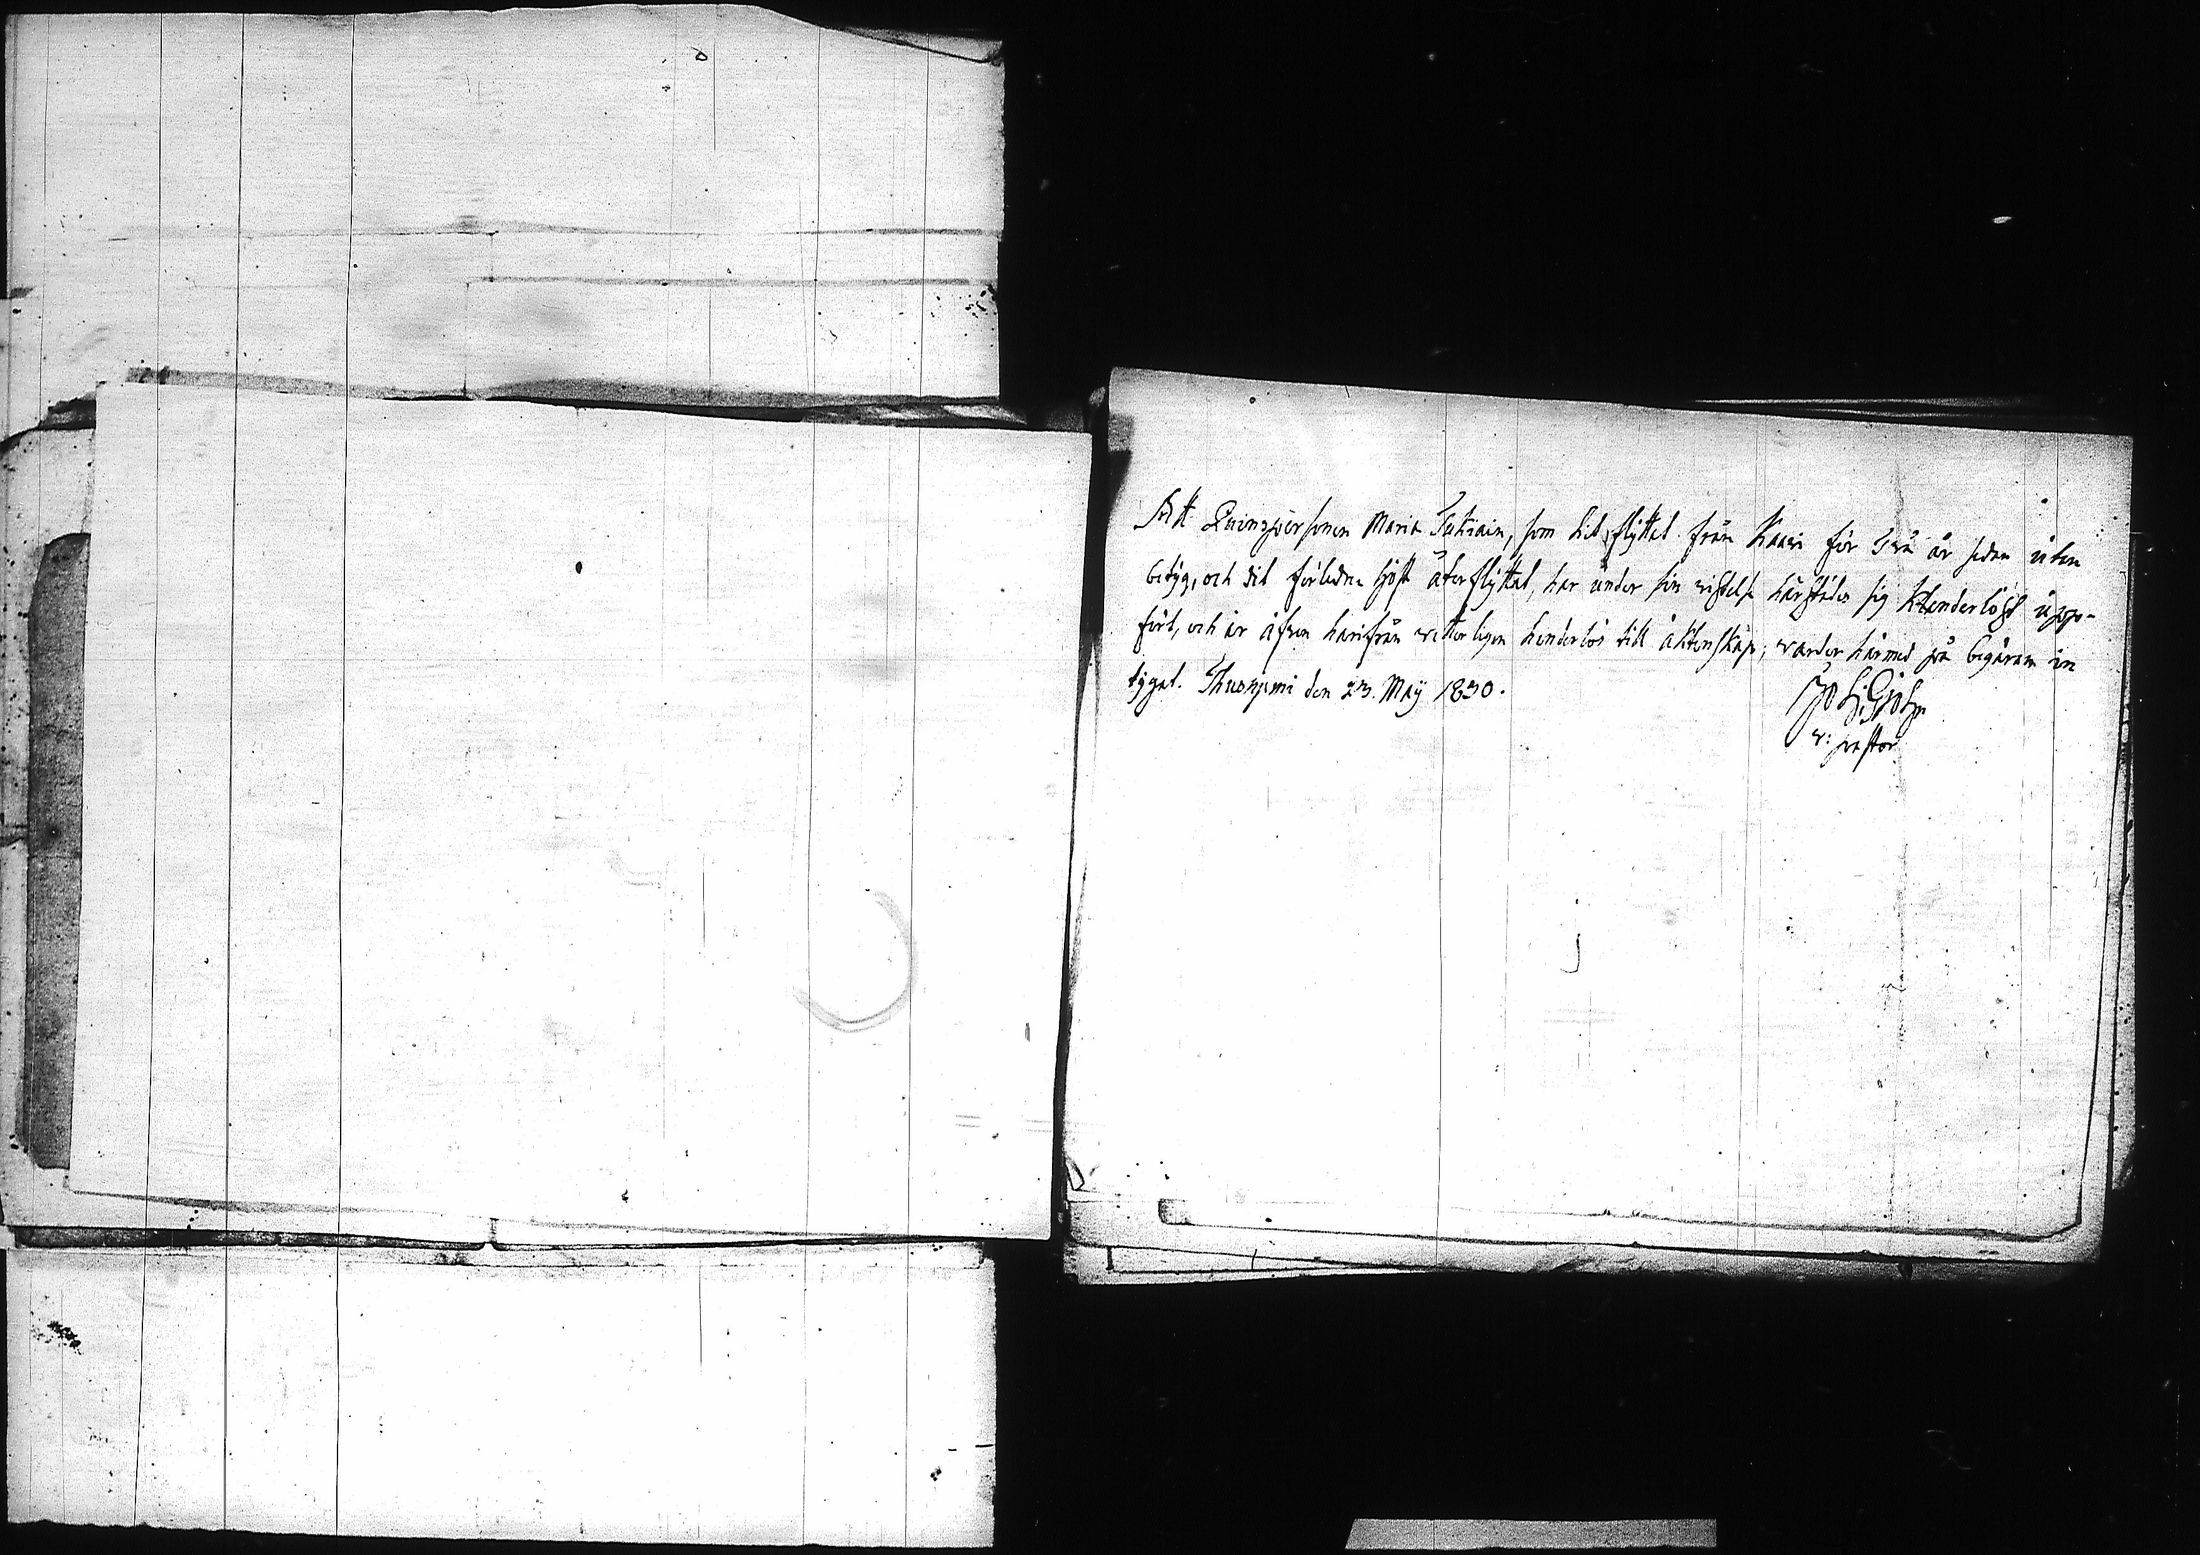 Att Qvinspersonen Maria Tukiain, som hit flyttat från Kaavi för två år sedan utan
betyg, och dit förledne höst återflyttat, har under sin vistelse härstädes sig klanderlöst upp-
fört, och är äfven härifrån veterligen hinderlös till äktenskap; varder härmed på begäran in
tygat. Thusniemi den 23. Maÿ 1830.
v: pastor